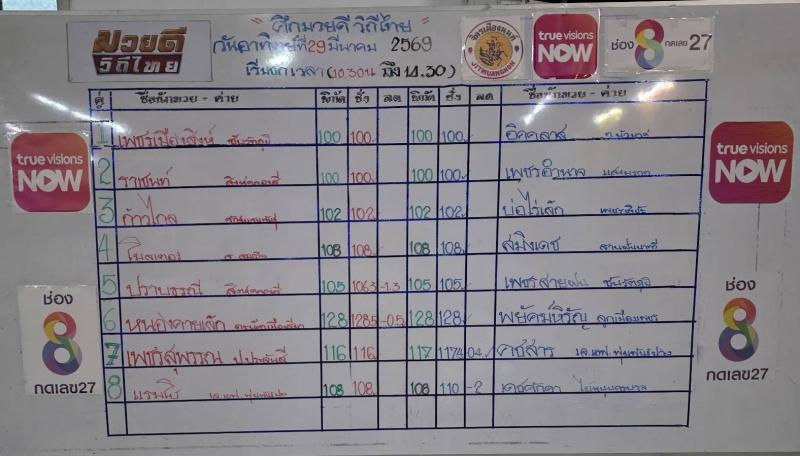 มวยดี
วิถีไทย
"ศึกมวยดี วิถีไทย"
วันอาทิตย์ที่ 29 มีนาคม 2569
เริ่มชกเวลา (10.30น ถึง 14.30)
จิตรเมืองนนท์
JITMUANGNON
true visions
NOW
ช่อง 8 กดเลข 27
คู่ ชื่อนักมวย - ค่าย พิกัด ชั่ง ลด พิกัด ชั่ง ลด ชื่อนักมวย - ค่าย
1 เพชรเมืองสิงห์ 100 100. 100 100. อิคคลาส
2 ราเชนท์ 100 100. 100 100. เพชรอำนาจ
3 ก้าวไกล 102 102. 102 102. บ่อไร่เล็ก
4 108 108. 108 108. สมิงเดช
5 ปราบธรณี 105 106.3 -1.3 105 105. เพชรสายฝน
6 หนองคายเล็ก 128 128.5 -0.5 128 128. พยัคฆ์หิรัญ ลูกเมืองเพชร
7 เพชรสุพรรณ ป.ประสันต์ 116 116. 117 117.4 0.4 คชสาร
8 แรมโบ้ 108 108. 108 110 -2 เดชศักดา
true visions
NOW
true visions
NOW
ช่อง
8
กดเลข27
ช่อง
8
กดเลข27